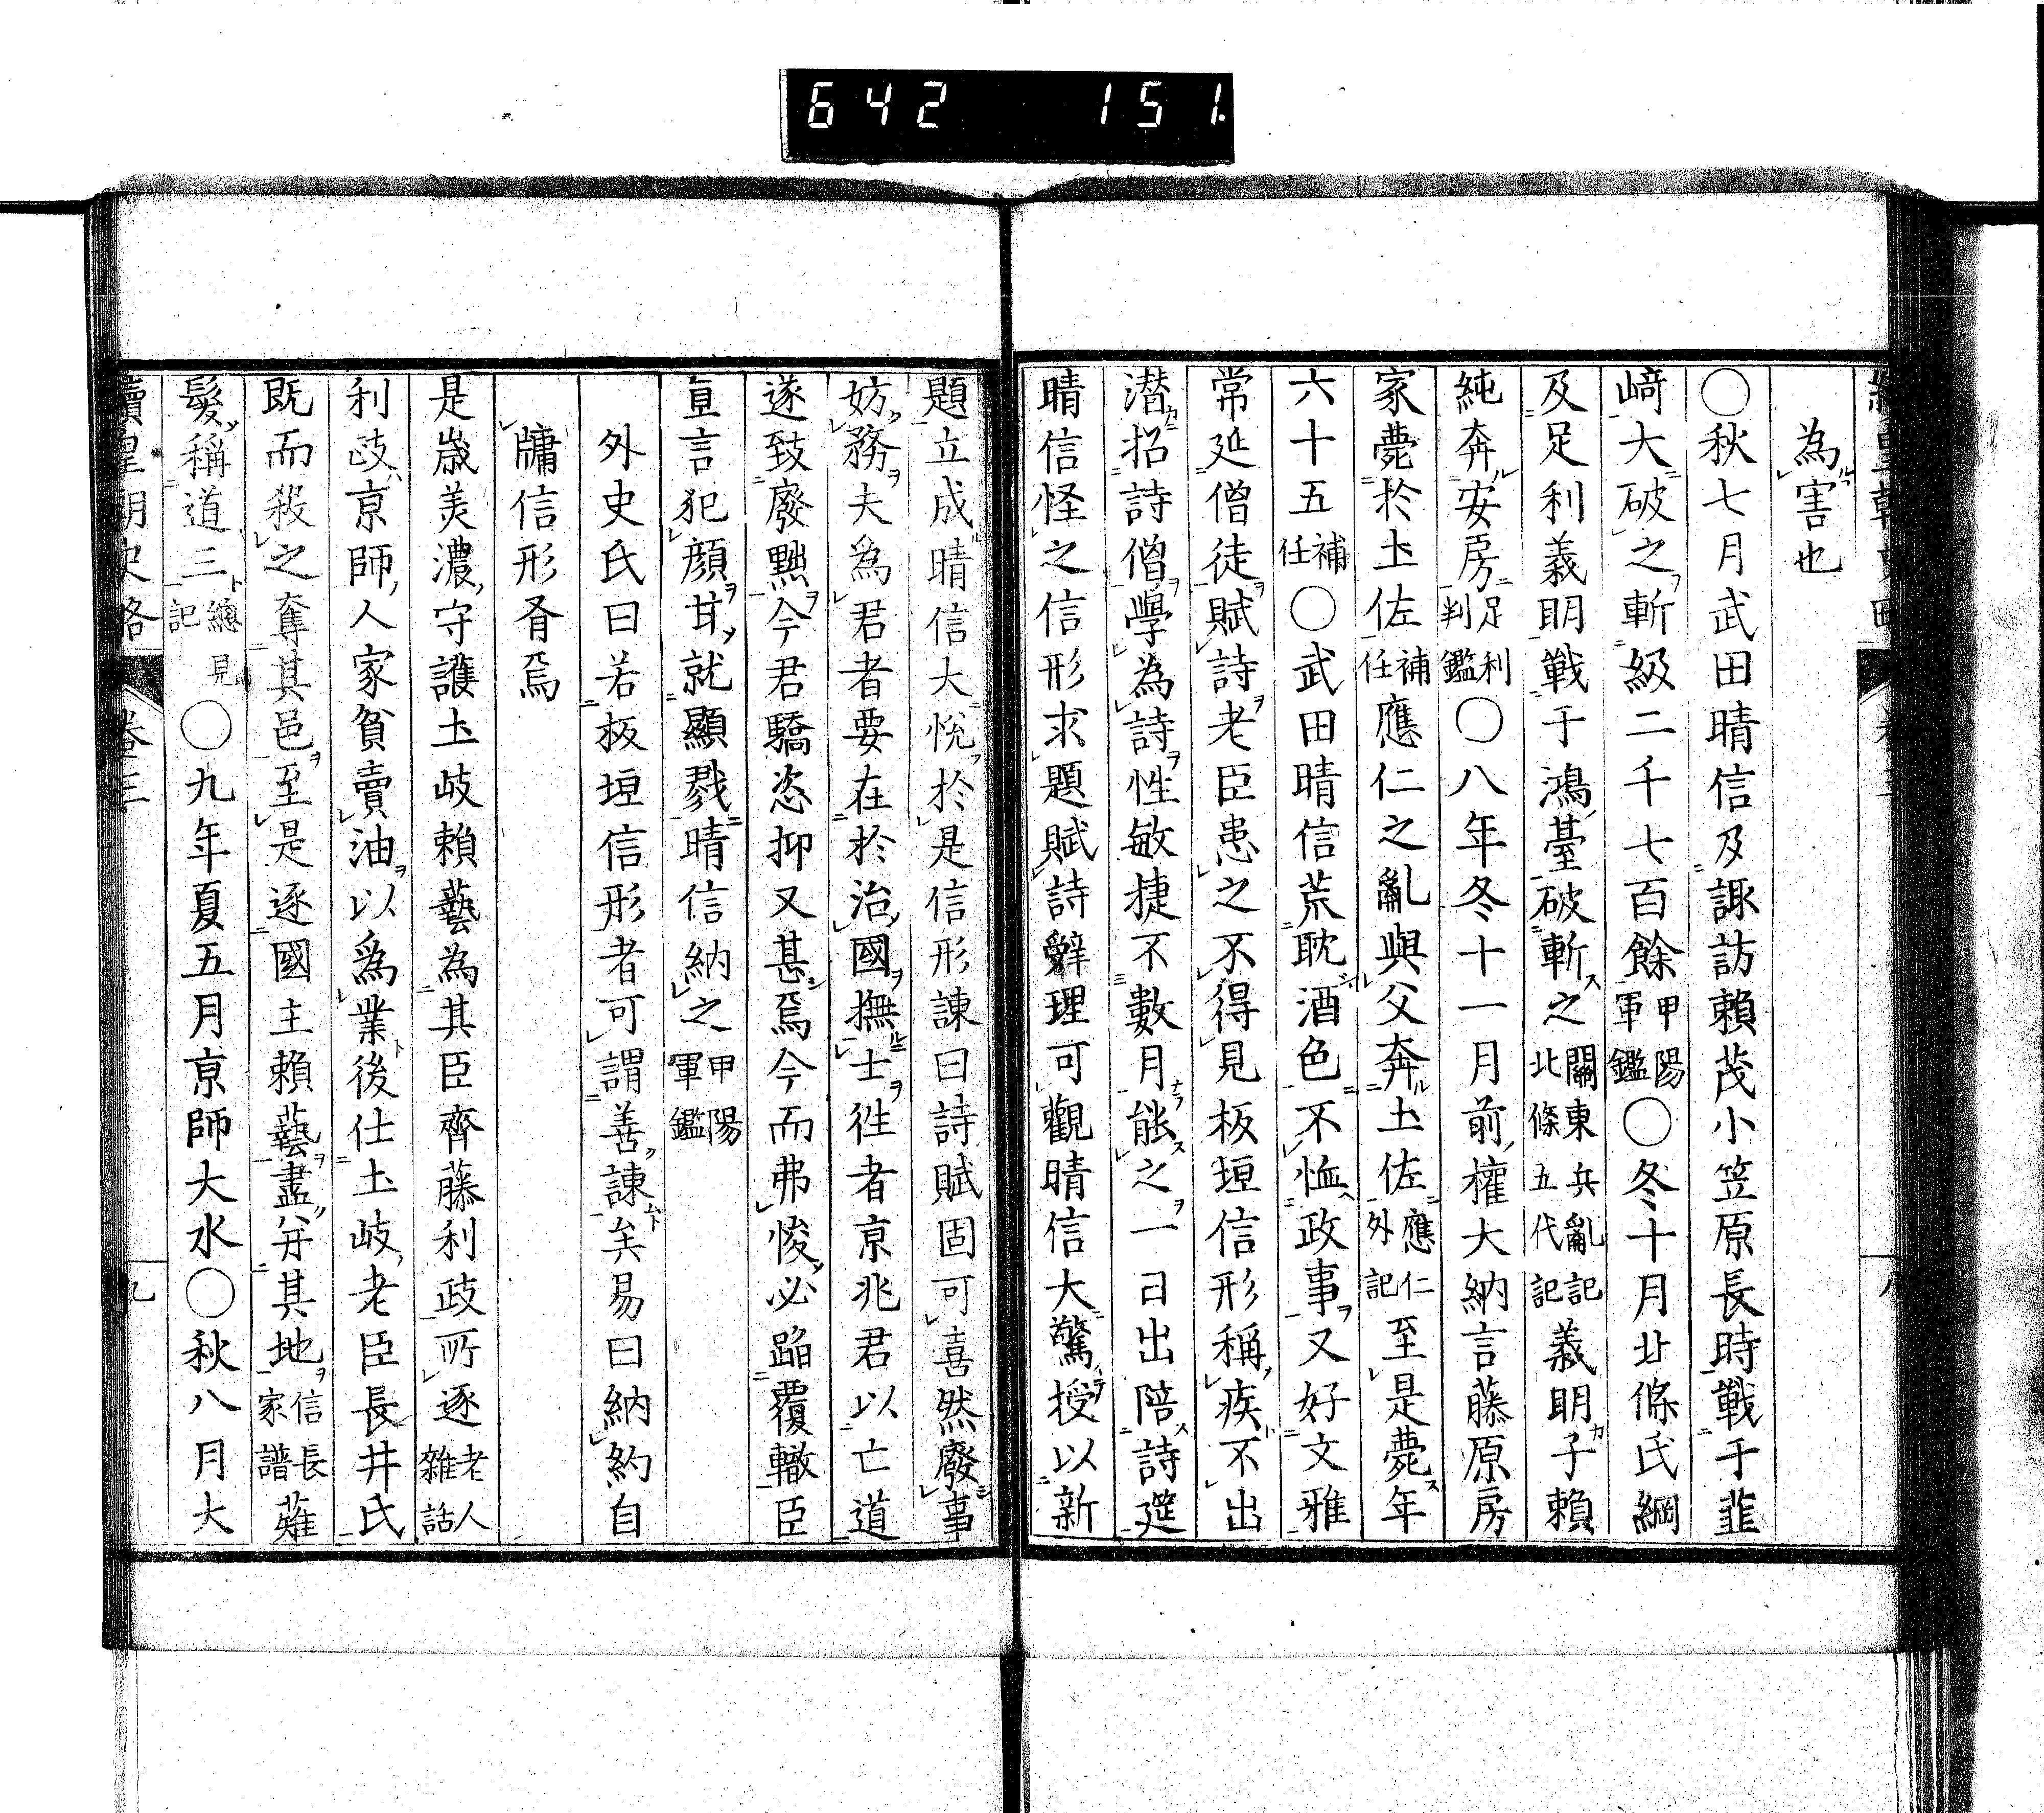 642 151
為害也
〇秋七月武田晴信及諏訪賴茂小笠原長時戰于韮
﨑大破之斬級二千七百餘甲陽軍鑑〇冬十月北條氏綱
及足利義明戰于鴻臺破斬之關東兵亂記北條五代記義明子賴
純奔安房足利判鑑〇八年冬十一月前權大納言藤原房
家薨於土佐補任應仁之亂與父奔土佐應仁外記至是薨年
六十五補任〇武田晴信荒耽酒色不恤政事又好文雅
常延僧徒賦詩老臣患之不得見板垣信形稱疾不出
潜招詩僧學為詩性敏捷不數月能之一日出陪詩筵
晴信怪之信形求題賦詩辭理可觀晴信大驚授以新
題立成晴信大悅於是信形諫曰詩賦固可喜然廢事
妨務夫為君者要在於治國撫士徃者京兆君以亡道
遂致廢黜今君驕恣抑又甚焉今而弗悛必蹈覆轍臣
直言犯顔甘就顯戮晴信納之甲陽軍鑑
外史氏曰若板垣信形者可謂善諫矣易曰納約自
牖信形有焉
是歲美濃守護土岐賴藝為其臣齊藤利政所逐老人雜話
利政京師人家貧賣油以為業後仕土岐老臣長井氏
既而殺之奪其邑至是逐國主賴藝盡并其地信長家譜薙
髮稱道三總見記〇九年夏五月京師大水〇秋八月大
續皇朝史略 卷三 九